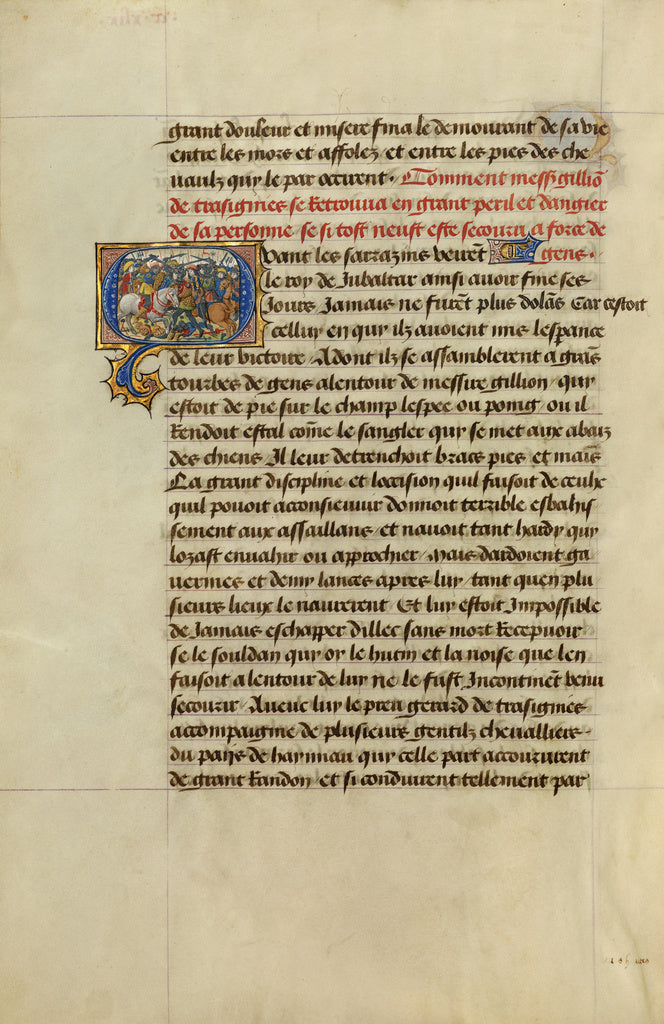 grant douleur et misere fina le demourant de sa vie
entre les mors et affolez / et entre les pies des che
uaulz quy le par occirent. Comment mess gilliō
de trasignies se Retrouua en grant peril et dangier
de sa personne / se si tost neust este secouru a force de
Quant les sarrazins veirēt gens.
le roy de Jubaltar ainsi auoir fine ses
Jours Jamais ne furēt plus dolās Car cestoit
celluy en quy ilz auoient mis lesperance
de leur victoire / Adont ilz se assamblerent a grās
tourbes de gens alentour de messire gillion / quy
estoit de pie sur le champ lespee ou poing / ou il
Rendoit estal cōme le sangler quy se met aux abaiz
des chiens Il leur detrenchoit bracs pies et mais
La grant discipline et loccision quil faisoit de ceulx
quil pouoit acconsieuuir donnoit terrible esbahis
sement aux assaillans / et nauoit tant hardy quy
lozast enuahir ou approchier / Mais dardoient ga
uermes et demy lances apres luy / tant quen plu
sieurs lieux le naurerent Et luy estoit Impossible
de Jamais eschapper dillec sans mort Recepuoir
se le souldan quy or le hutin et la noise que len
faisoit alentour de luy ne le fust Incontinēt venu
secourir / Auec luy le preu gerard de trasignies
accompaignie de plusieurs gentilz chevalliers
du pays de haynnau quy celle part accoururent
de grant Randon / et si conduirent tellement par